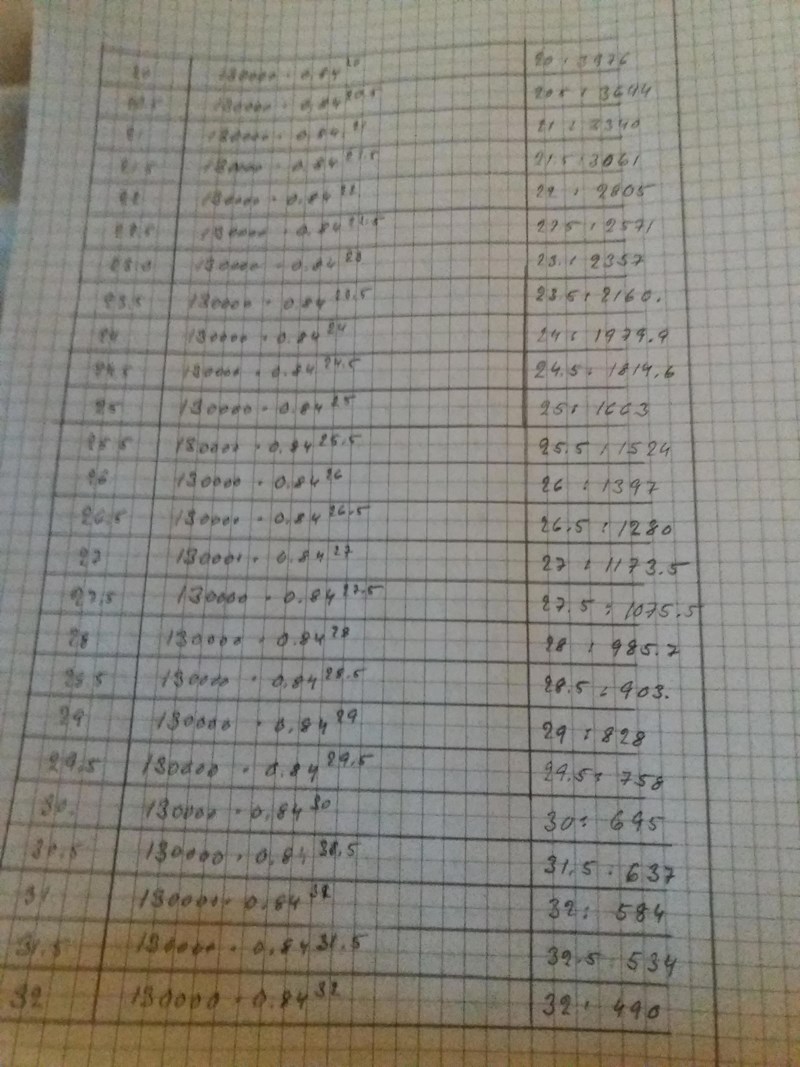 20 130000 · 0,84^20 20 : 3976
20.5 130000 · 0,84^20.5 20.5 : 3644
21 130000 · 0,84^21 21 : 3340
21.5 130000 · 0,84^21.5 21.5 : 3061
22 130000 · 0,84^22 22 : 2805
22.5 130000 · 0,84^22.5 22.5 : 2571
23.0 130000 · 0,84^23 23 : 2357
23.5 130000 · 0.84^23.5 23.5 : 2160.
24 130000 · 0.84^24 24 : 1979.9
24.5 130000 · 0.84^24.5 24.5 : 1814.6
25 130000 · 0.84^25 25 : 1663
25.5 130000 · 0.84^25.5 25.5 : 1524
26 130000 · 0.84^26 26 : 1397
26.5 130000 · 0.84^26.5 26.5 : 1280
27 130000 · 0.84^27 27 : 1173.5
27.5 130000 · 0.84^27.5 27.5 : 1075.5
28 130000 · 0,84^28 28 : 985.7
28.5 130000 · 0,84^28.5 28.5 : 903.
29 130000 · 0,84^29 29 : 828
29.5 130000 · 0,84^29.5 29.5 : 758
30. 130000 · 0,84^30 30 : 695
30.5 130000 · 0,84^30.5 31.5 · 637
31 130000 · 0.84 32 : 584
31.5 130000 · 0.84^31.5 32.5 · 534
32 130000 · 0.84^32 32 : 490